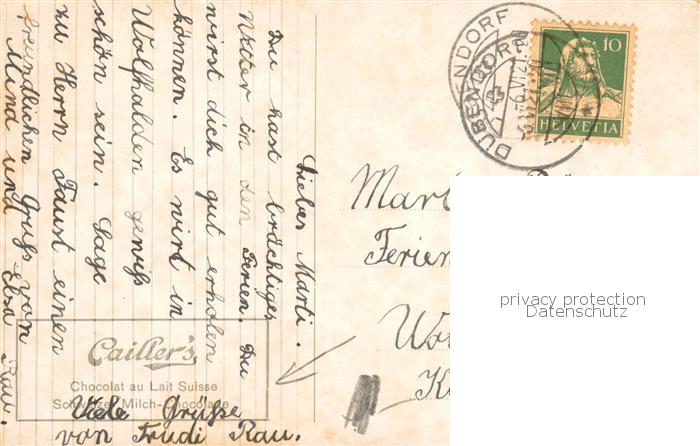 Liebes Marti.
Du hast prächtiges
Wetter in den Ferien. Du
wirst dich gut erholen
können. Es wirt in
Wolfhalden gewiss
schön sein. Sage
zu Herrn Faust einen
freundlichen Gruss von
Mina und Elsa Rau.
Cailler's
Chocolat au Lait Suisse
Schweizer Milch-Chocolade
Viele Grüße
von Trudi Rau.
DÜBENDORF
10
HELVETIA
Mart
Ferien
Wo
K
privacy protection
Datenschutz